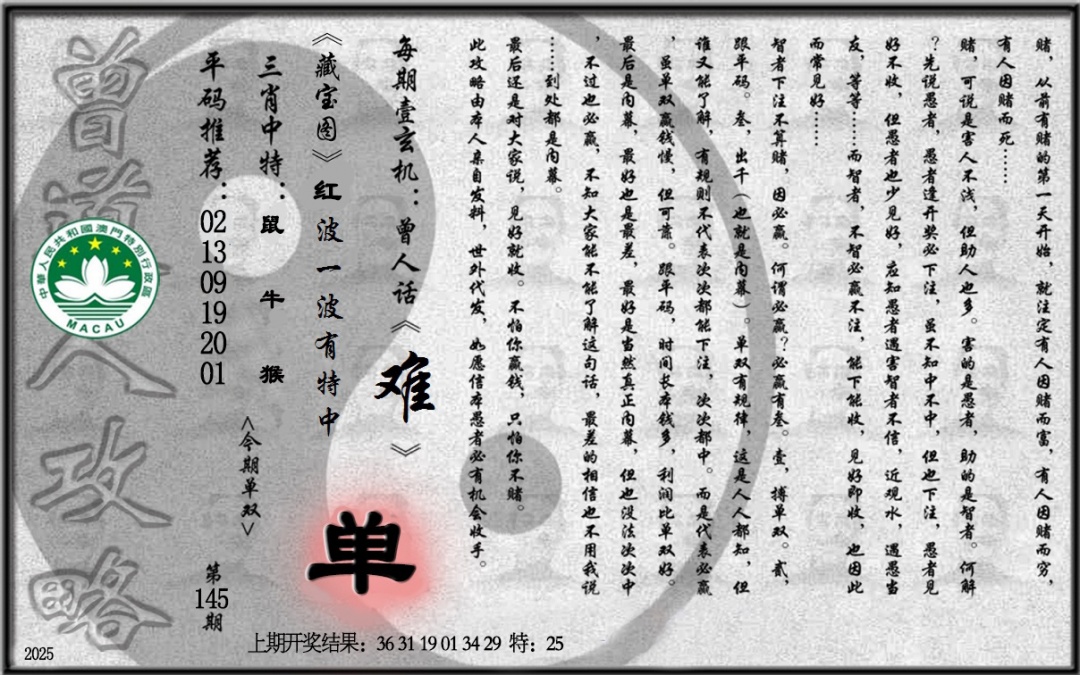 赌，从前有赌的第一天开始，就注定有人因赌而富，有人因赌而穷，
有人因赌而死……
赌，可说是害人不浅，但助人也多。害的是愚者，助的是智者。何解
？先说愚者，愚者逢开奖必下注，虽不知中不中，但也下注，愚者见
好不收，但愚者也少见好，应知愚者遇害智者不信，近观水，遇愚当
友，等等……而智者，不智必赢不注，能下能收，见好即收，也因此
而常见好……
智者下注不算赌，因必赢。何谓必赢？必赢有叁。壹，搏单双。贰，
跟平码。叁，出千（也就是内幕）。单双有规律，这是人人都知，但
谁又能了解，有规则不代表次次都能下注，次次都中。而是代表必赢
，虽单双赢钱慢，但可靠。跟平码，时间长本钱多，利润比单双好。
最后是内幕，最好也是最差，最好是当然真正内幕，但也没法次次中
，不过也必赢，不知大家能不能了解这句话，最差的相信也不用我说
……到处都是内幕。
最后还是对大家说，见好就收。不怕你赢钱，只怕你不赌。
此攻略由本人亲自发料，世外代发，如愿信本愚者必有机会收手。
每期壹玄机：曾人话《难》
《藏宝图》红波一波有特中
单
三肖中特：鼠 牛 猴
<今期单双>
平码推荐：02 13 09 19 20 01
第145期
曾道人攻略
中華人民共和國澳門特別行政區
MACAU
上期开奖结果：36 31 19 01 34 29 特：25
2025